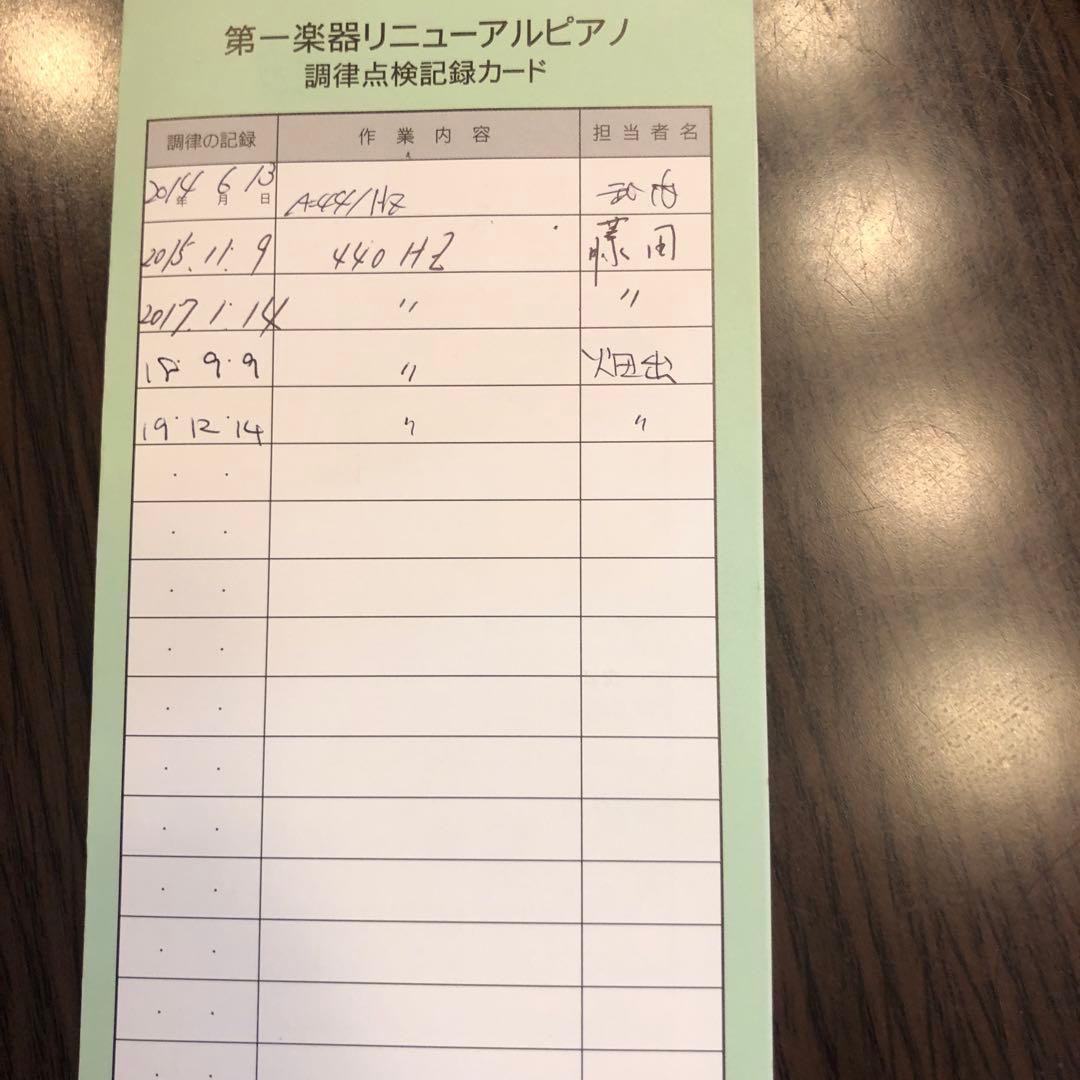 第一楽器リニューアルピアノ
調律点検記録カード
調律の記録 作業内容 担当者名
2014年 6月 13日 A=441Hz 武内
2015.11.9 440HZ 藤田
2017.1.14 〃 〃
18.9.9 〃 畑出
19.12.14 〃 〃